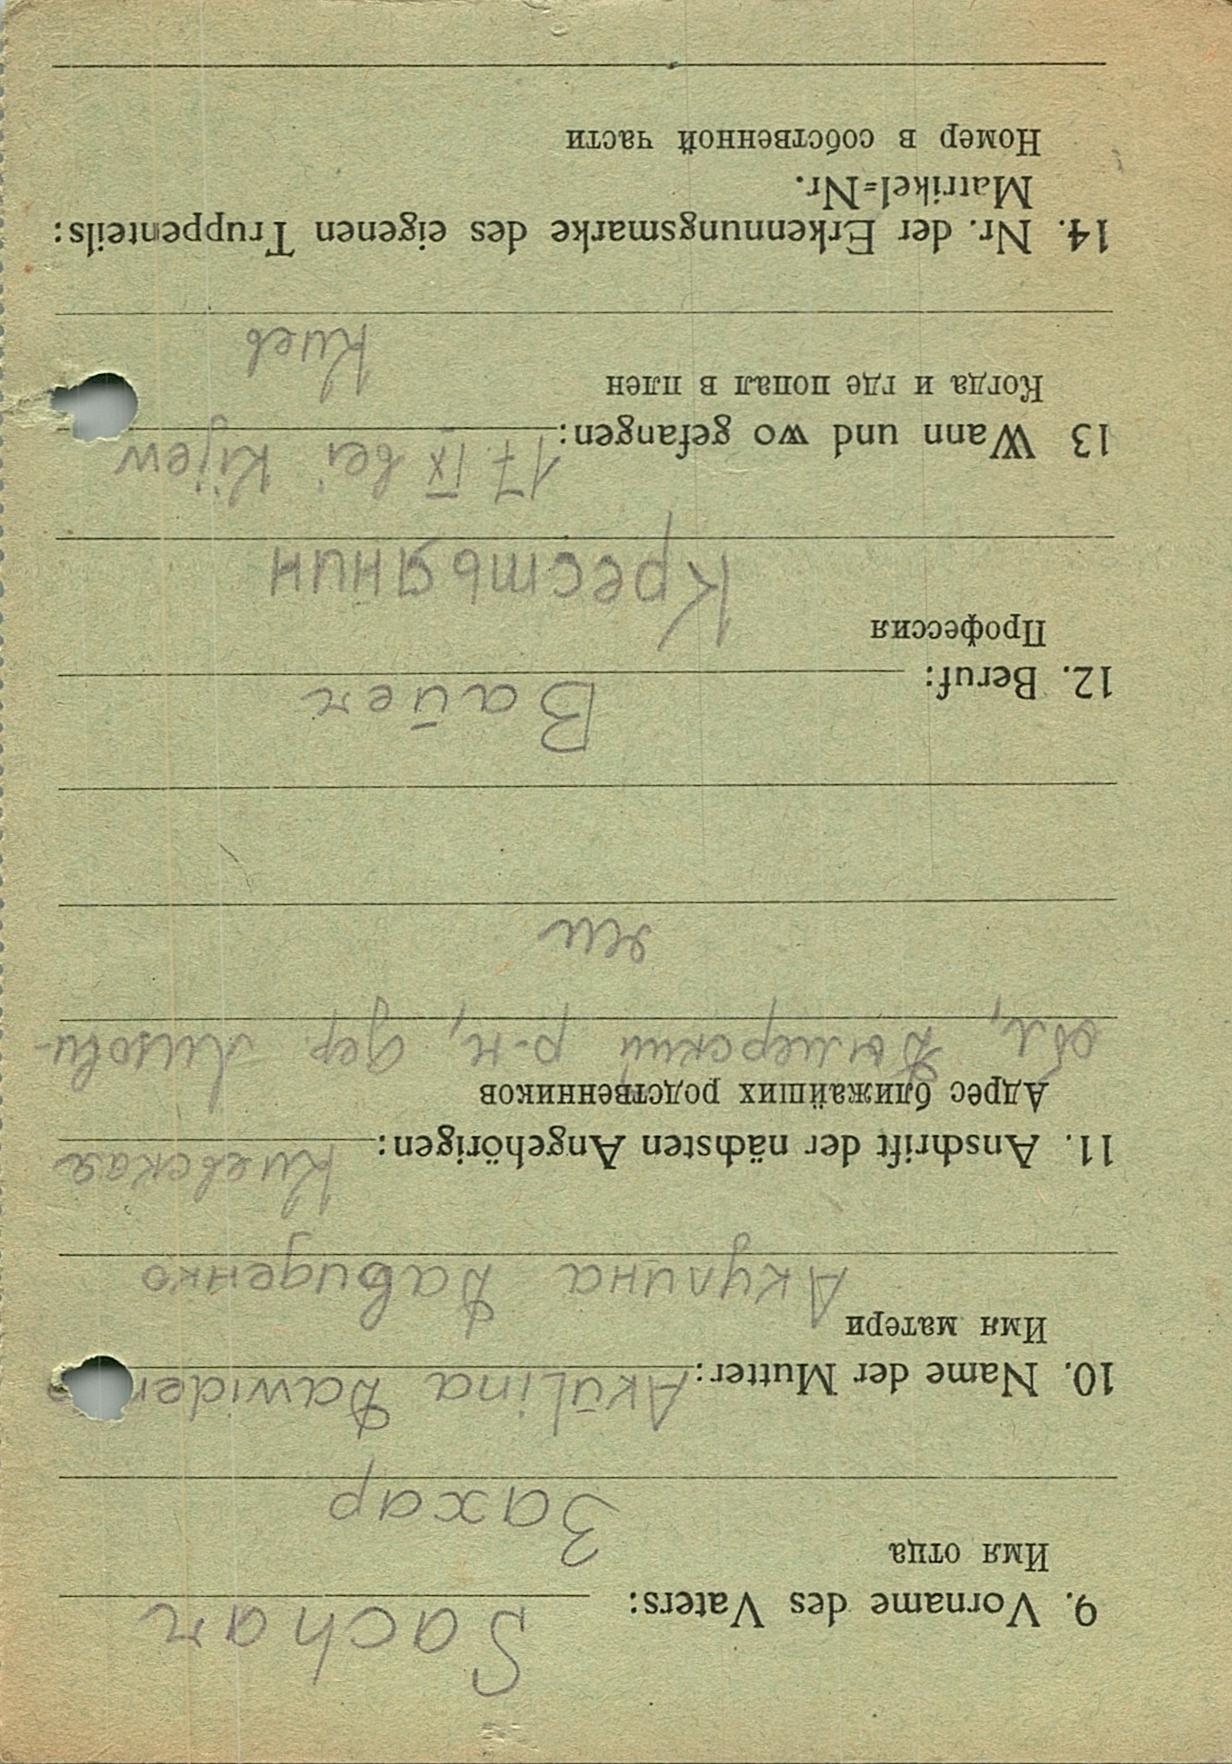 9. Vorname des Vaters: Sachar
Имя отца
Захар
10. Name der Mutter: Akūlina Dawiden
Имя матери
Акулина Давиденко
11. Anschrift der nächsten Angehörigen: Киевская
Адрес ближайших родственников
обл, Дымерский р-н, дер.
12. Beruf: Baūer
Профессия
Крестьянин
13 Wann und wo gefangen: 17. IX bei Kijew
Когда и где попал в плен
Киев
14. Nr. der Erkennungsmarke des eigenen Truppenteils:
Matrikel=Nr.
Номер в собственной части